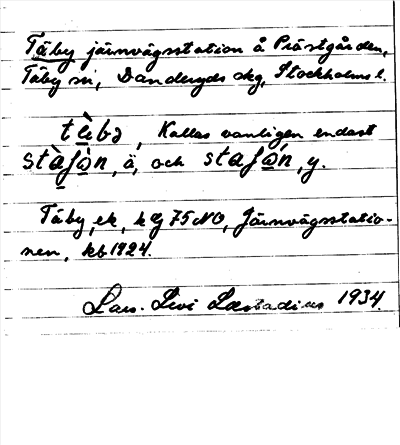 Täby järnvägsstation å Prästgården,
Täby sn, Danderyds skg, Stockholms l.
tä̀bɔ, Kallas vanligen endast
stàʃòn, ä, och staʃón, y.
Täby, ek, bg 75 NO, Järnvägsstatio-
nen, kb 1924.
Lars-Levi Læstadius 1934.